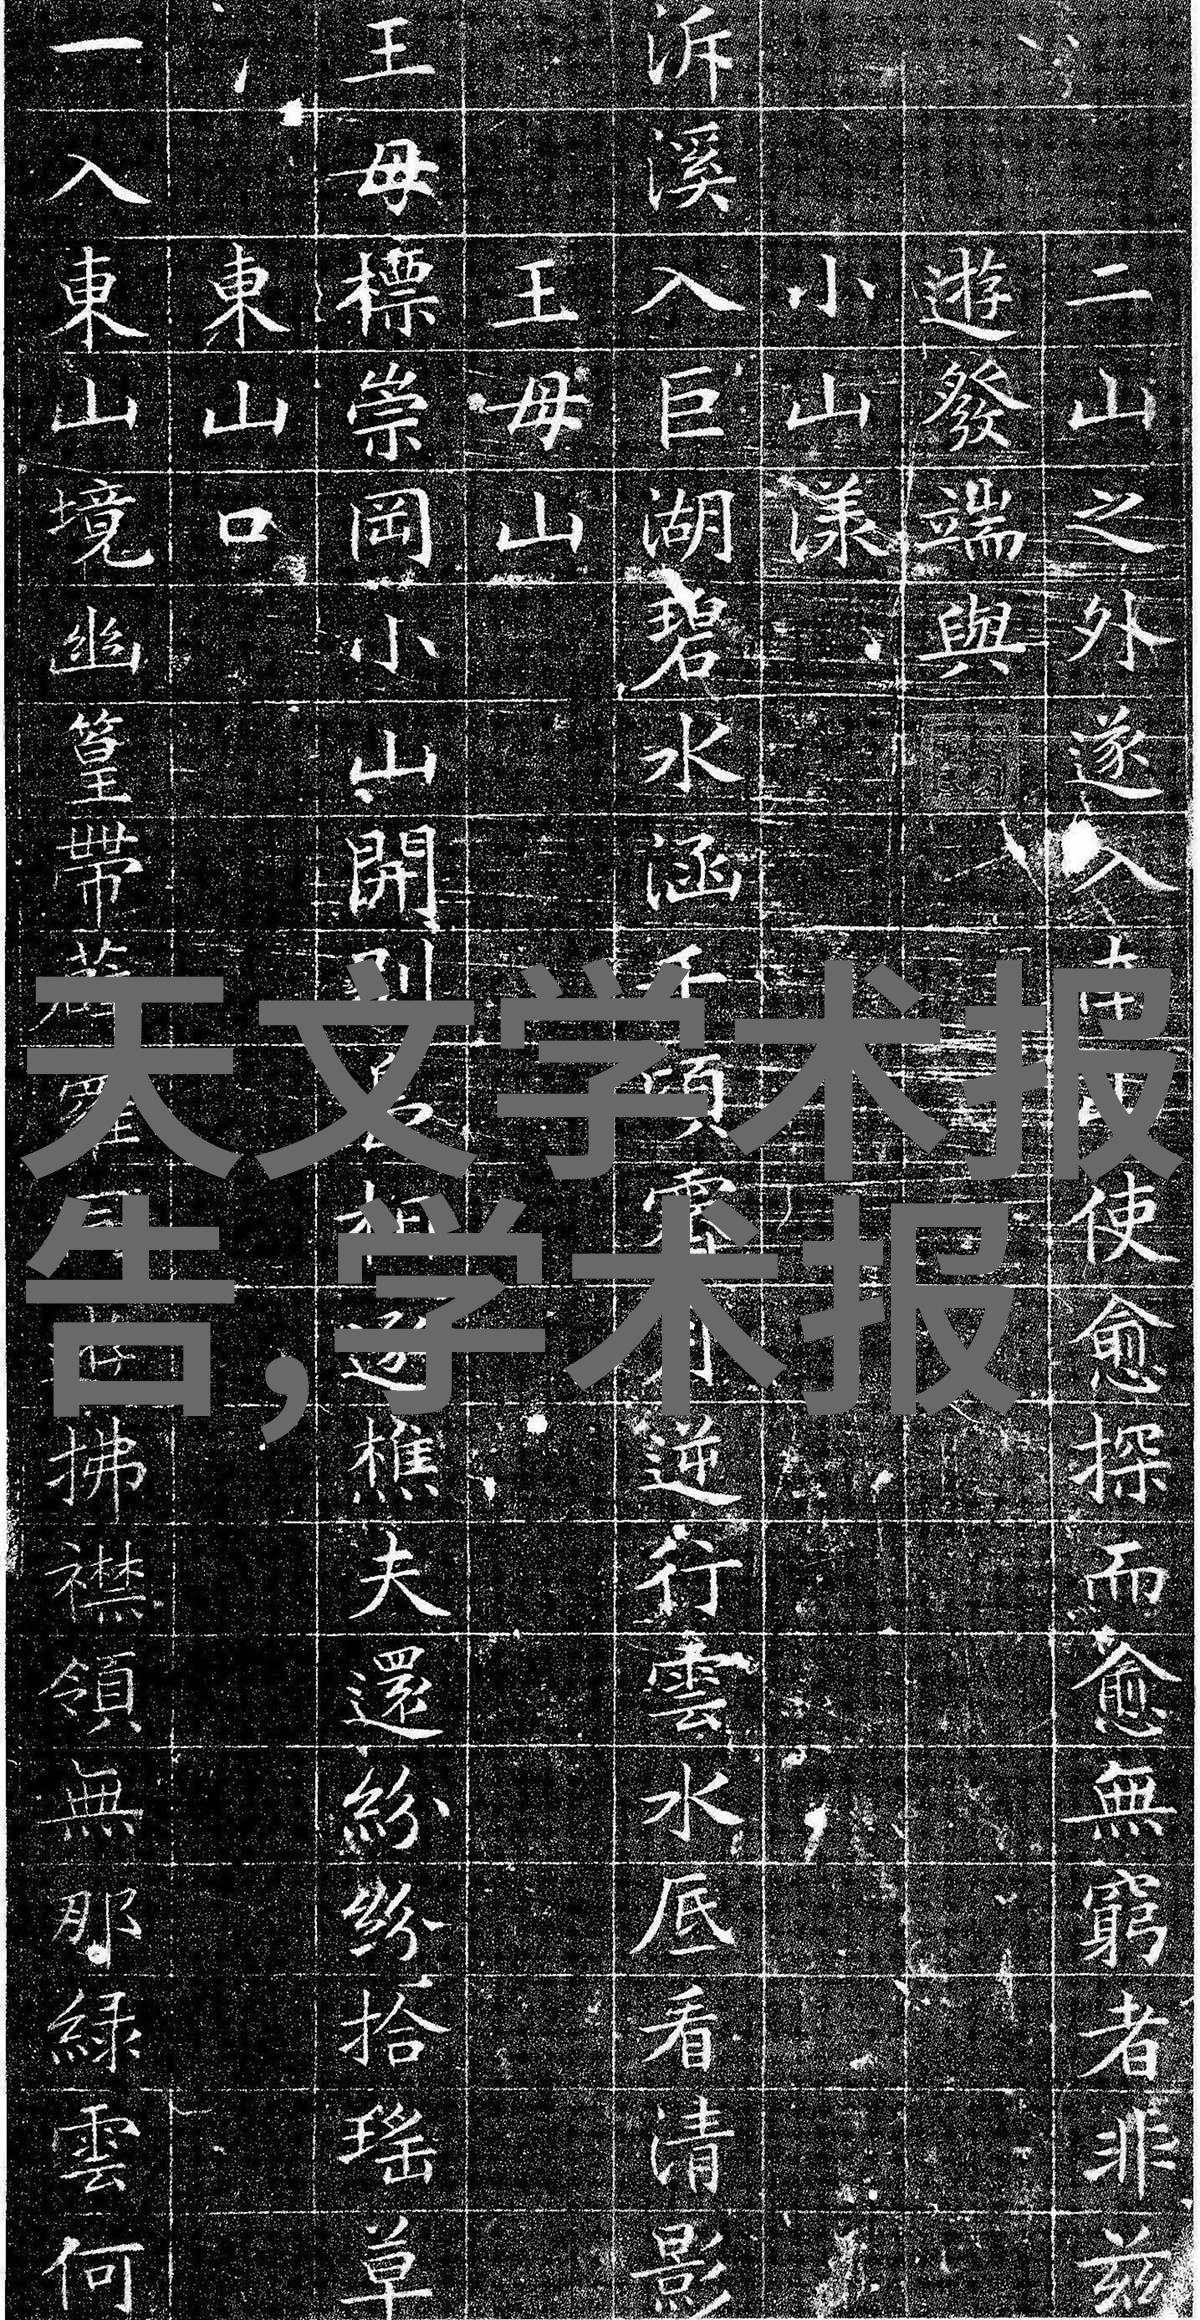 二山之外遂入使愈探而愈無窮者非茲
遊發端與
小山漾
泝溪入巨湖碧水涵千頃逆行雲水底看清影
王母山
王母標崇岡小山開別相逐樵夫還紛紛拾瑤草
東山口
一入東山境幽篁帶拂襟領無那綠雲何
天文学术报
告,学术报